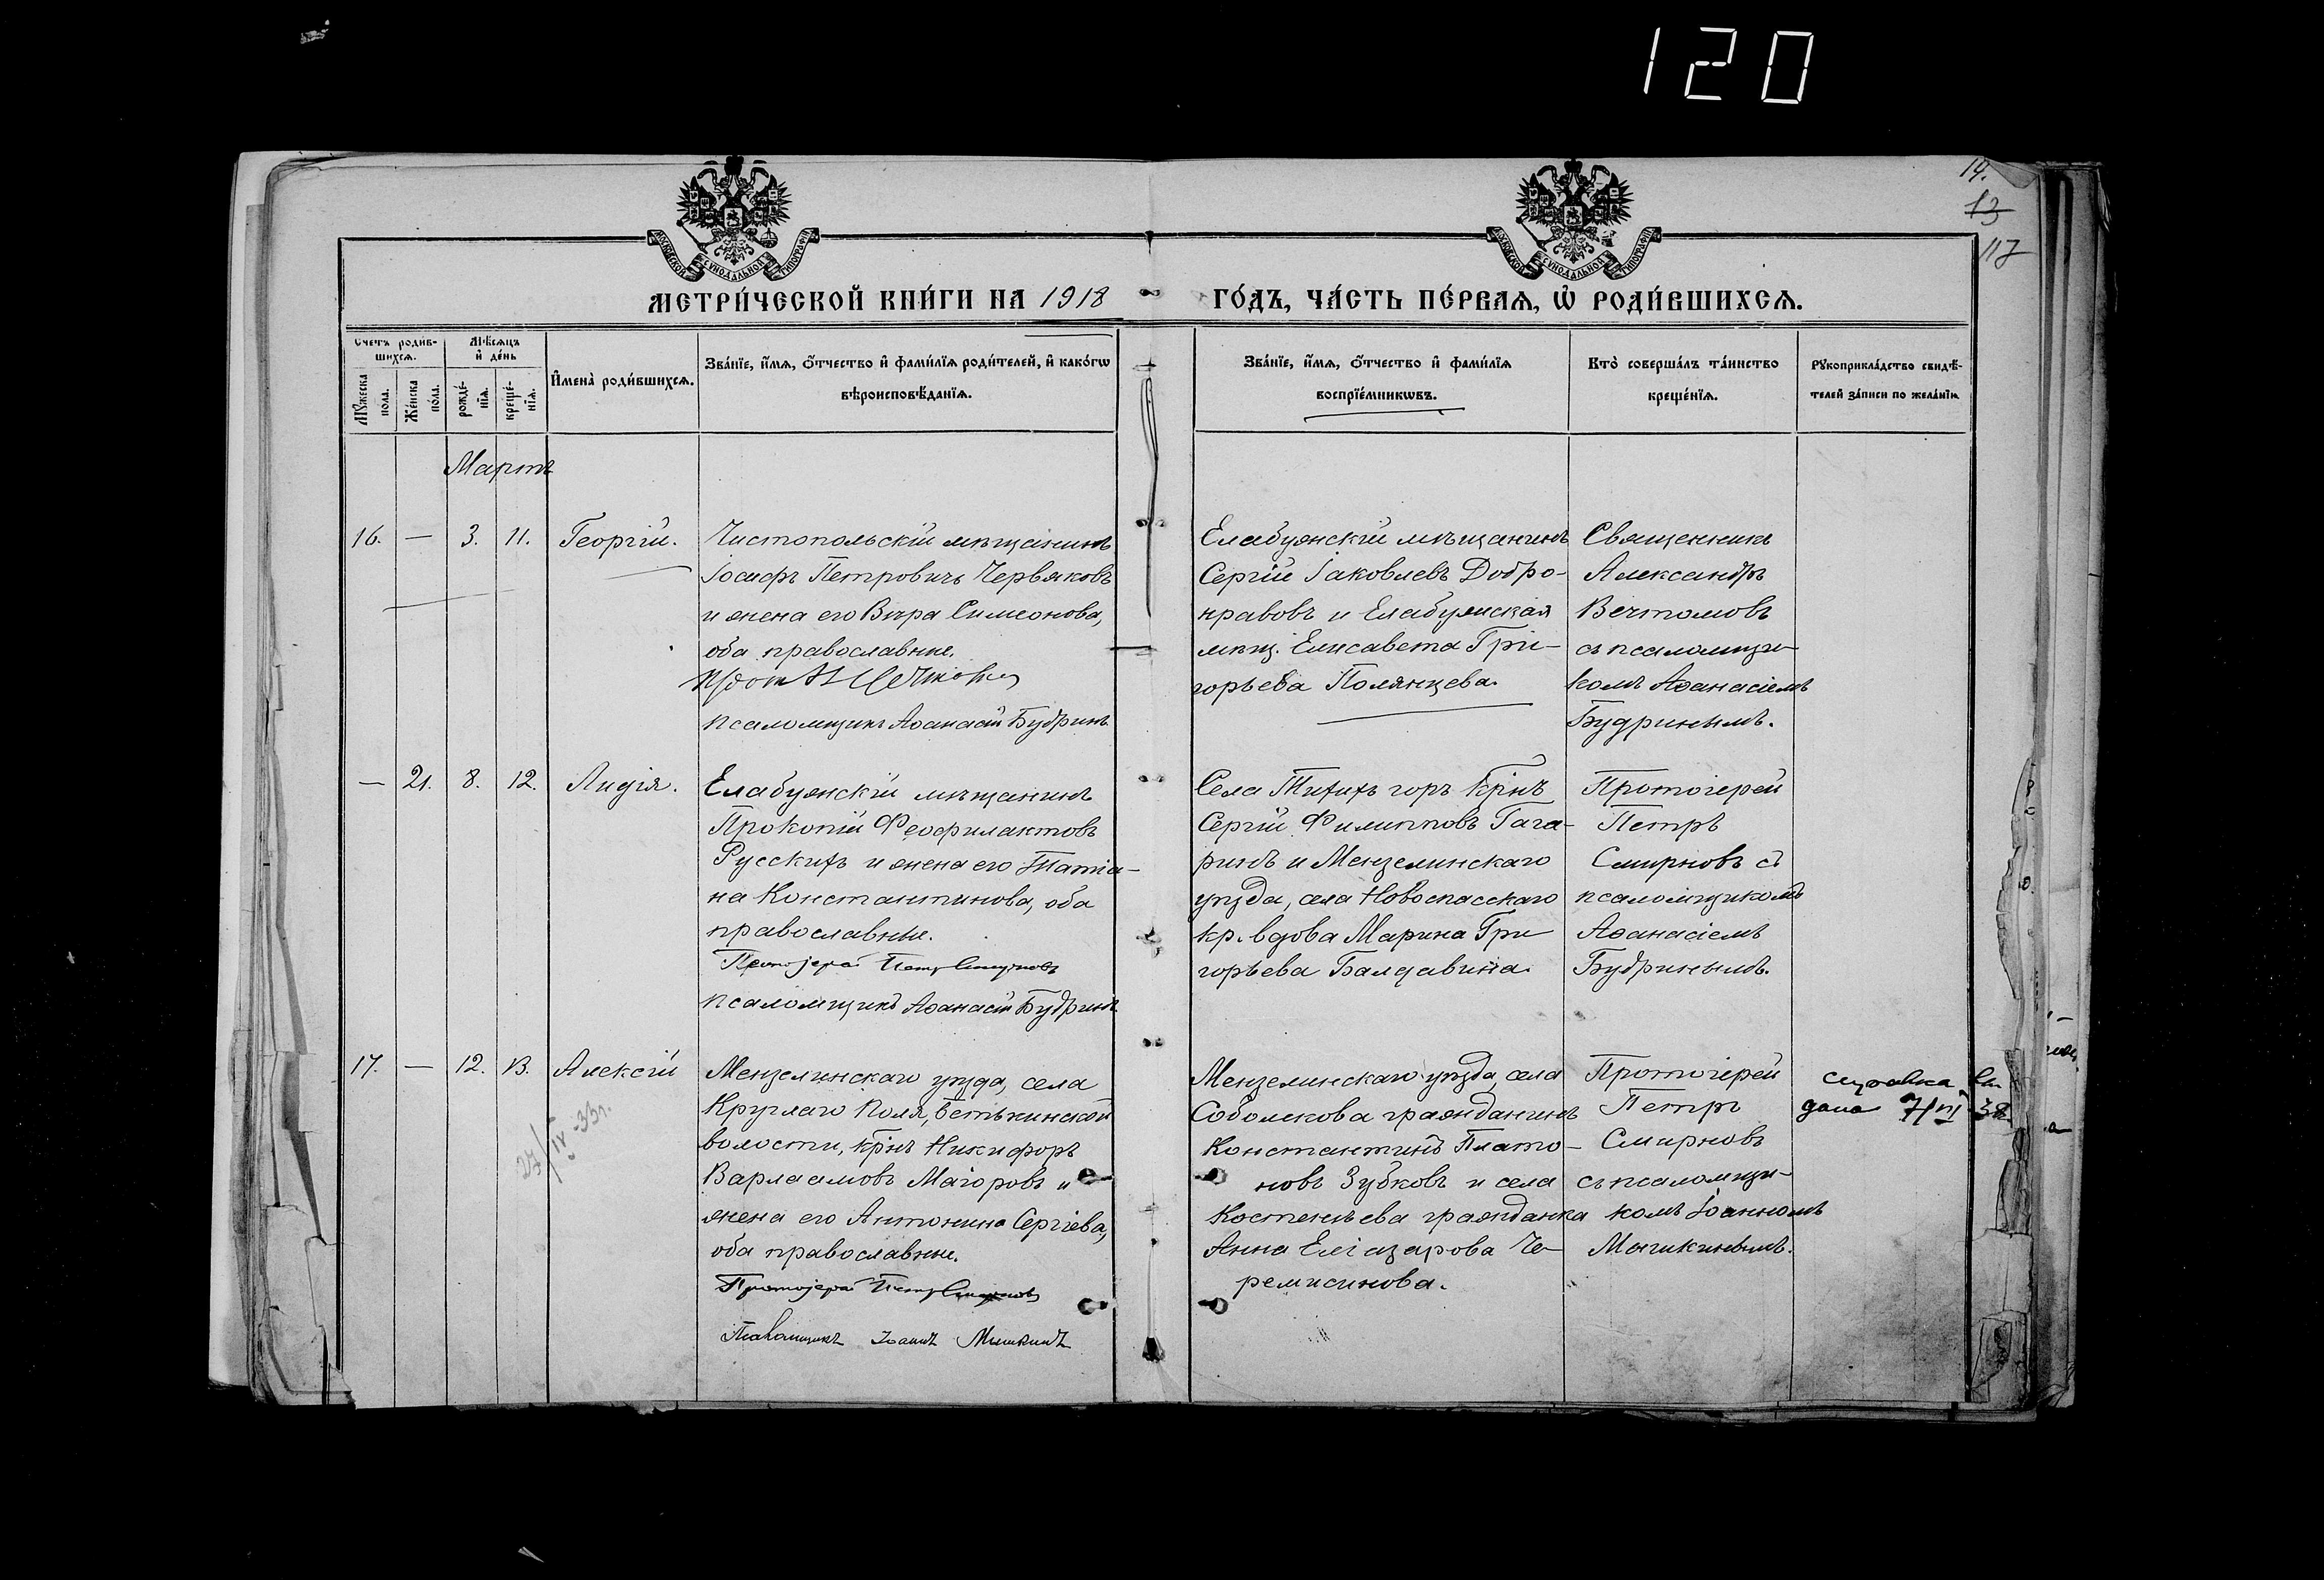 120
14.
13
117
МОСКОВСКОЙ СѴНОДАЛЬНОЙ ТИПОГРАФІИ
МОСКОВСКОЙ СѴНОДАЛЬНОЙ ТИПОГРАФІИ
МЕТРИ́ЧЕСКОЙ КНИ́ГИ НА 1918
ГО́ДЪ, ЧА́СТЬ ПЕ́РВАѦ, Ѡ҆ РОДИ́ВШИХСѦ.
Счетъ роди́в-
шихсѧ.
Мѣ́сѧцъ
и҆ де́нь
Мꙋ́жеска
пола.
Же́нска
по́ла.
рожде́-
нїѧ.
креще́-
нїѧ.
И҆мена̀ роди́вшихсѧ.
Зва́нїе, и҆́мѧ, ѻ҆́тчество и҆ фами́лїѧ роди́телей, и҆ како́гѡ
вѣроисповѣ́данїѧ.
Зва́нїе, и҆́мѧ, ѻ҆́тчество и҆ фами́лїѧ
воспрїе́мникѡвъ.
Кто̀ соверша́лъ та́инство
креще́нїѧ.
Рꙋкоприкла́дство свидѣ́-
телей за́писи по жела́нїю.
Мартъ
16. — 3. 11. Георгій.
Чистопольскій мѣщанинъ
Іосифъ Петровичъ Червяковъ
и жена его Вѣра Симеонова,
оба православные.
псаломщикъ Аѳанасій Будринъ
Елабужскій мѣщанинъ
Сергій Іаковлевъ Добро-
нравовъ и Елабужская
мѣщ. Елисавета Гри-
горьева Полянцева.
Священникъ
Александръ
Вечтомовъ
съ псаломщи-
комъ Аѳанасіемъ
Будринымъ.
— 21. 8. 12. Лидія.
Елабужскій мѣщанинъ
Прокопій Феофилактовъ
Русскихъ и жена его Татіа-
на Константинова, оба
православные.
Протоіерей Петръ Смирновъ
псаломщикъ Аѳанасій Будринъ.
Села Тихихъ горъ крнъ
Сергій Филипповъ Гага-
ринъ и Мензелинскаго
уѣзда, села Новоспасскаго
кр. вдова Марина Гри
горьева Балдавина.
Протоіерей
Петръ
Смирновъ съ
псаломщикомъ
Аѳанасіемъ
Будринымъ.
17. — 12. 13. Алексій
27/IV-33г.
Мензелинскаго уѣзда, села
Круглаго Поля, Бетькинской
волости, крнъ Никифоръ
Варлаамовъ Маіоровъ и
жена его Антонина Сергіева,
оба православные.
Протоіерей Петръ Смирновъ
Псаломщикъ Іоаннъ Мышкинъ
Мензелинскаго уѣзда, села
Соболекова гражданинъ
Константинъ Плато-
новъ Зубковъ и села
Костенѣева гражданка
Анна Елеазарова Че-
ремисинова.
Протоіерей
Петръ
Смирновъ
съ псаломщи-
комъ Іоанномъ
Мышкинымъ.
справка
дана 7/VI 38